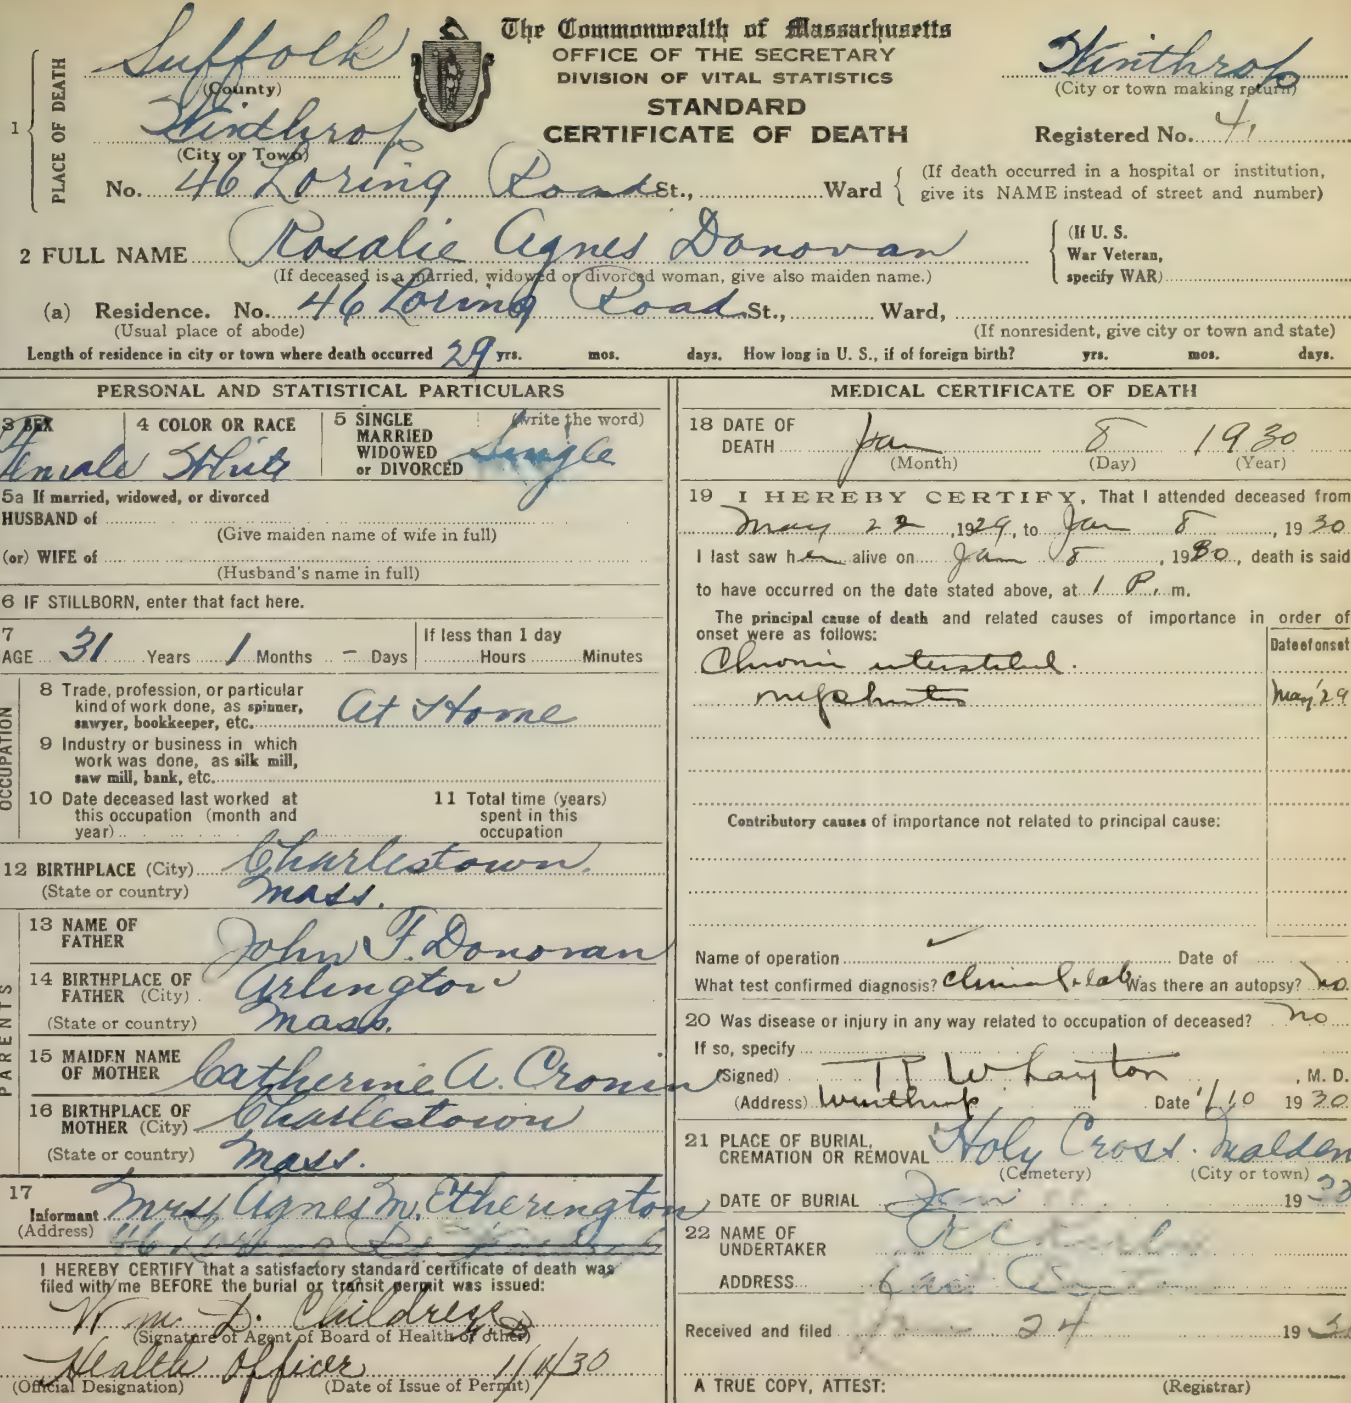 The Commonwealth of Massachusetts
OFFICE OF THE SECRETARY
DIVISION OF VITAL STATISTICS
STANDARD
CERTIFICATE OF DEATH
1 PLACE OF DEATH
Suffolk
(County)
Winthrop
(City or Town)
No. 46 Loring Road St., Ward
(If death occurred in a hospital or institution,
give its NAME instead of street and number)
Winthrop
(City or town making return)
Registered No. 41
2 FULL NAME Rosalie Agnes Donovan
(If deceased is a married, widowed or divorced woman, give also maiden name.)
(If U. S.
War Veteran,
specify WAR)
(a) Residence. No. 46 Loring Road St., Ward,
(Usual place of abode)
(If nonresident, give city or town and state)
Length of residence in city or town where death occurred 29 yrs. mos. days. How long in U. S., if of foreign birth? yrs. mos. days.
PERSONAL AND STATISTICAL PARTICULARS
3 SEX
Female
4 COLOR OR RACE
White
5 SINGLE
MARRIED
WIDOWED
or DIVORCED
(write the word)
Single
5a If married, widowed, or divorced
HUSBAND of
(Give maiden name of wife in full)
(or) WIFE of
(Husband's name in full)
6 IF STILLBORN, enter that fact here.
7
AGE 31 Years 1 Months - Days
If less than 1 day
Hours Minutes
OCCUPATION
8 Trade, profession, or particular
kind of work done, as spinner,
sawyer, bookkeeper, etc. At Home
9 Industry or business in which
work was done, as silk mill,
saw mill, bank, etc.
10 Date deceased last worked at
this occupation (month and
year)
11 Total time (years)
spent in this
occupation
12 BIRTHPLACE (City) Charlestown.
(State or country) Mass.
PARENTS
13 NAME OF
FATHER John F. Donovan
14 BIRTHPLACE OF
FATHER (City) Arlington
(State or country) Mass.
15 MAIDEN NAME
OF MOTHER Catherine A. Cronin
16 BIRTHPLACE OF
MOTHER (City) Charlestown
(State or country) Mass.
17
Informant Mrs Agnes M. Etherington
(Address) 46
I HEREBY CERTIFY that a satisfactory standard certificate of death was
filed with me BEFORE the burial or transit permit was issued:
Wm D. Childress
(Signature of Agent of Board of Health or other)
Health Officer 1/11/30
(Official Designation) (Date of Issue of Permit)
MEDICAL CERTIFICATE OF DEATH
18 DATE OF
DEATH Jan 8 1930
(Month) (Day) (Year)
19 I HEREBY CERTIFY, That I attended deceased from
May 22, 1929, to Jan 8, 1930
I last saw her alive on Jan 8, 1930, death is said
to have occurred on the date stated above, at 1 P. m.
The principal cause of death and related causes of importance in order of
onset were as follows:
Date of onset
Chronic interstitial
nephritis May '29
Contributory causes of importance not related to principal cause:
Name of operation Date of
What test confirmed diagnosis? Clinical & lab Was there an autopsy? no.
20 Was disease or injury in any way related to occupation of deceased? no
If so, specify
(Signed) , M. D.
(Address) Winthrop Date 1/10 1930
21 PLACE OF BURIAL,
CREMATION OR REMOVAL Holy Cross. Malden
(Cemetery) (City or town)
DATE OF BURIAL Jan 19
22 NAME OF
UNDERTAKER
ADDRESS
Received and filed 24 19
A TRUE COPY, ATTEST:
(Registrar)